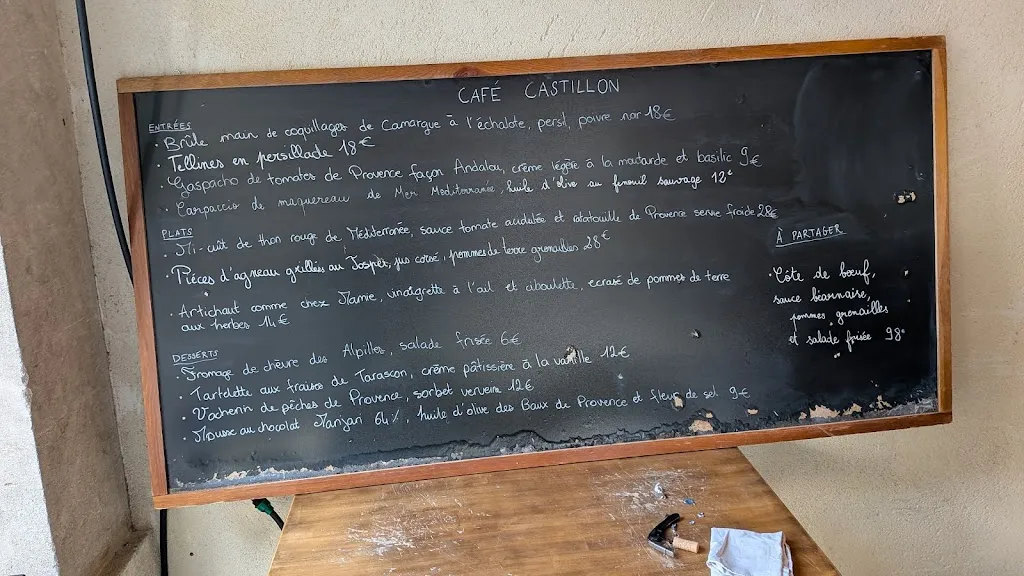 CAFÉ CASTILLON
ENTRÉES
• Brûle main de coquillages de Camargue à l'échalote, persil, poivre noir 18€
• Tellines en persillade 18€
• Gaspacho de tomates de Provence façon Andalou, crème légère à la moutarde et basilic 9€
• Carpaccio de maquereau de Mer Méditerranée, huile d'olive au fenouil sauvage 12€
PLATS
• Mi-cuit de thon rouge de Méditerranée, sauce tomate acidulée et ratatouille de Provence servie froide 28€
• Pièces d'agneau grillées au Josper, jus corsé, pommes de terre grenailles 28€
• Artichaut comme chez Mamie, vinaigrette à l'ail et ciboulette, ecrasé de pommes de terre
aux herbes 14€
DESSERTS
• Fromage de chèvre des Alpilles, salade frisée 6€
• Tartelette aux fraises de Tarascon, crème pâtissière à la vanille 12€
• Vacherin de pêches de Provence, sorbet verveine 12€
• Mousse au chocolat Manjari 64%, huile d'olive des Baux de Provence et fleur de sel 9€
À PARTAGER
• Côte de boeuf,
sauce béarnaise,
pommes grenailles
et salade frisée 98€